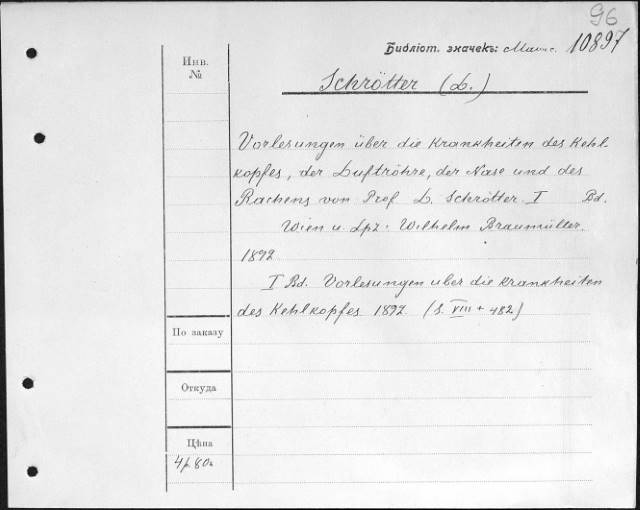 96
Библіот. значекъ: Мавис. 10897
Инв.
№
Schrötter (L.)
Vorlesungen über die Krankheiten des Kehl-
kopfes, der Luftröhre, der Nase und des
Rachens von Prof L. Schrötter. I Bd.
Wien u. Lpz. Wilhelm Braumüller.
1892
I Bd. Vorlesungen uber die Krankheiten
des Kehlkopfes 1892. (S. VIII + 482)
По заказу
Откуда
Цѣна
4р. 80к